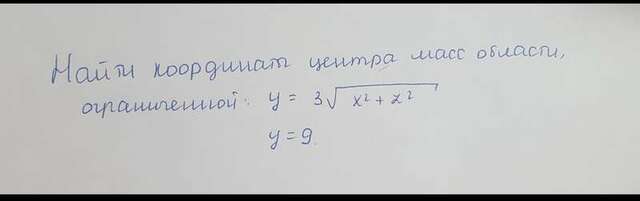 Найти координаты центра масс области,
ограниченной: y = 3√(x² + z²)
y = 9.